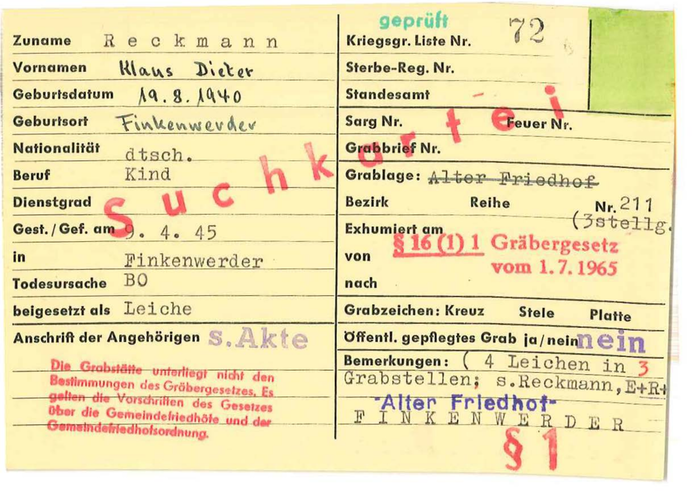 geprüft
Zuname Reckmann
Vornamen Klaus Dieter
Geburtsdatum 19.8.1940
Geburtsort Finkenwerder
Nationalität dtsch.
Beruf Kind
Dienstgrad
Gest./Gef. am 9. 4. 45
in Finkenwerder
Todesursache BO
beigesetzt als Leiche
Anschrift der Angehörigen s.Akte
Die Grabstätte unterliegt nicht den
Bestimmungen des Gräbergesetzes. Es
gelten die Vorschriften des Gesetzes
über die Gemeindefriedhöfe und der
Gemeindefriedhofsordnung.
Suchkartei
Kriegsgr. Liste Nr. 72
Sterbe-Reg. Nr.
Standesamt
Sarg Nr. Feuer Nr.
Grabbrief Nr.
Grablage: Alter Friedhof
Bezirk Reihe Nr. 211
(3stellg.
Exhumiert am
§ 16 (1) 1 Gräbergesetz
von vom 1.7.1965
nach
Grabzeichen: Kreuz Stele Platte
Öffentl. gepflegtes Grab ja/nein nein
Bemerkungen: ( 4 Leichen in 3
Grabstellen; s.Reckmann,E+R+
-Alter Friedhof-
FINKENWERDER
§ 1